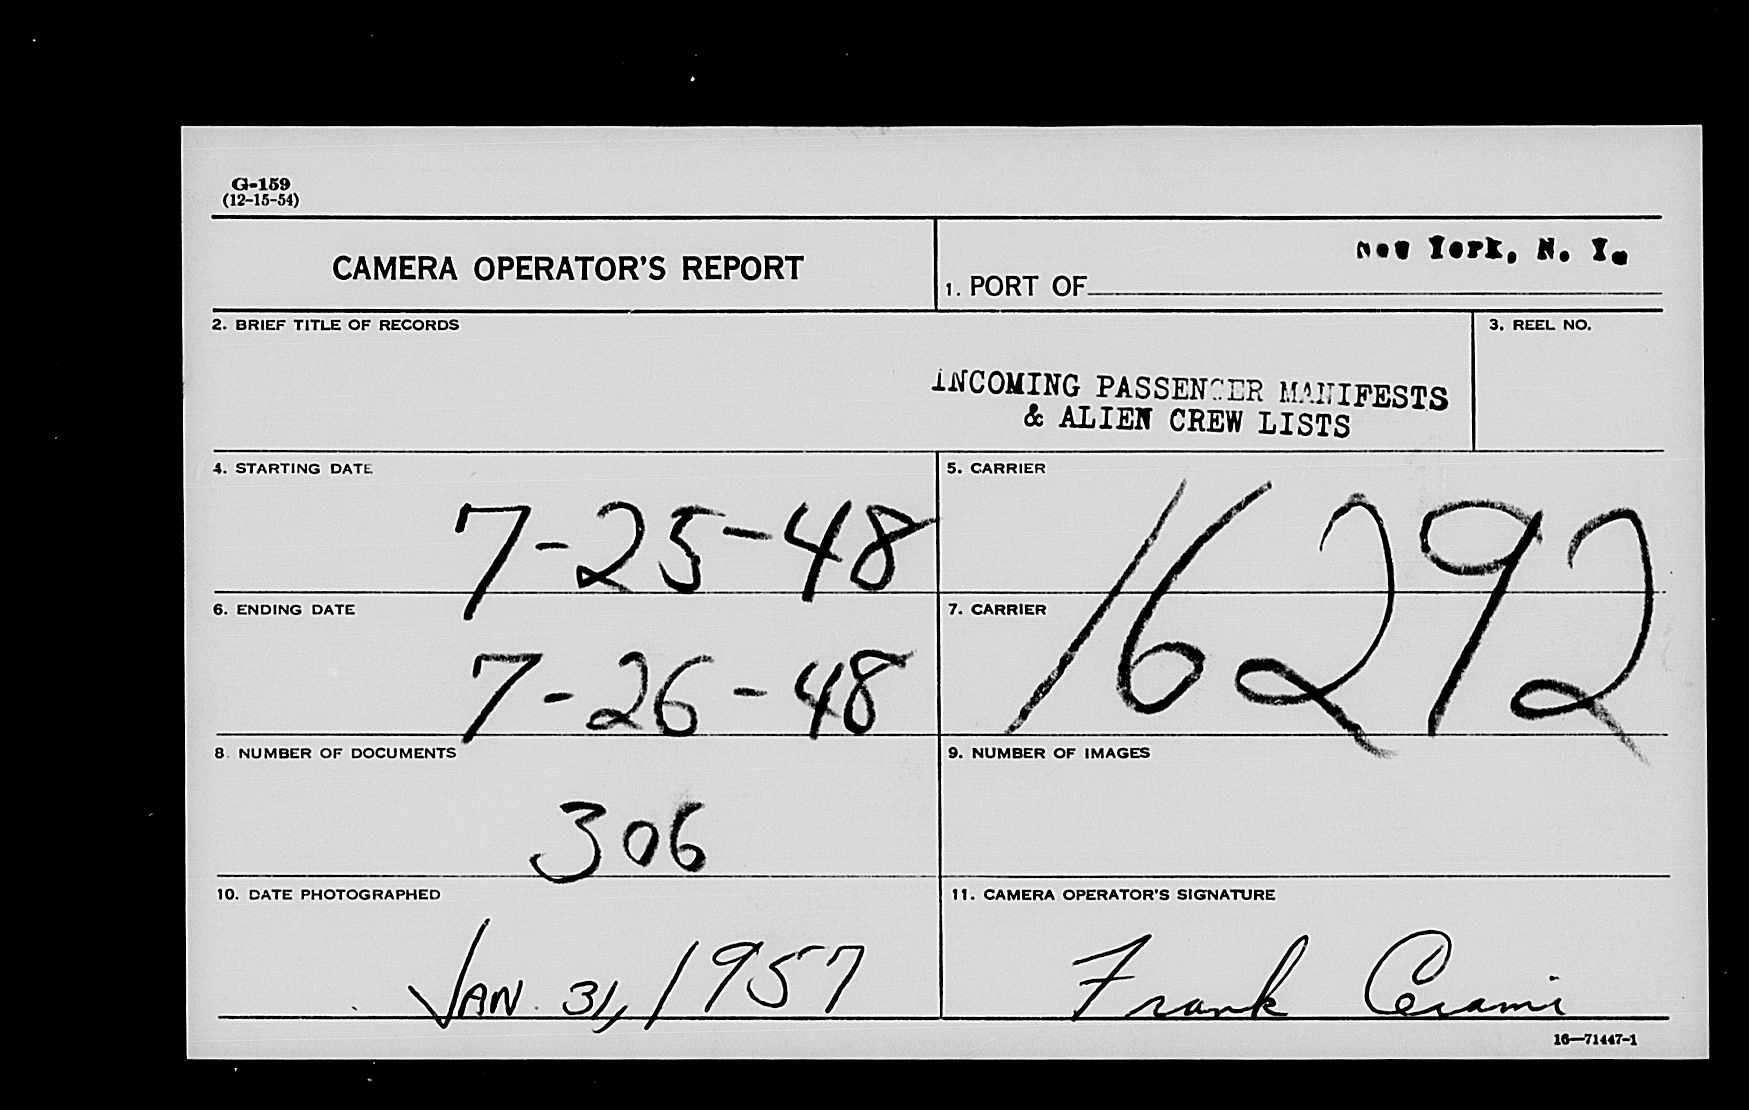 G-159
(12-15-54)
CAMERA OPERATOR'S REPORT
1. PORT OF New York, N. Y.
2. BRIEF TITLE OF RECORDS
INCOMING PASSENGER MANIFESTS
& ALIEN CREW LISTS
3. REEL NO.
4. STARTING DATE
7-25-48
5. CARRIER
16292
6. ENDING DATE
7-26-48
7. CARRIER
8. NUMBER OF DOCUMENTS
306
9. NUMBER OF IMAGES
10. DATE PHOTOGRAPHED
JAN. 31, 1957
11. CAMERA OPERATOR'S SIGNATURE
Frank Cerami
16—71447-1